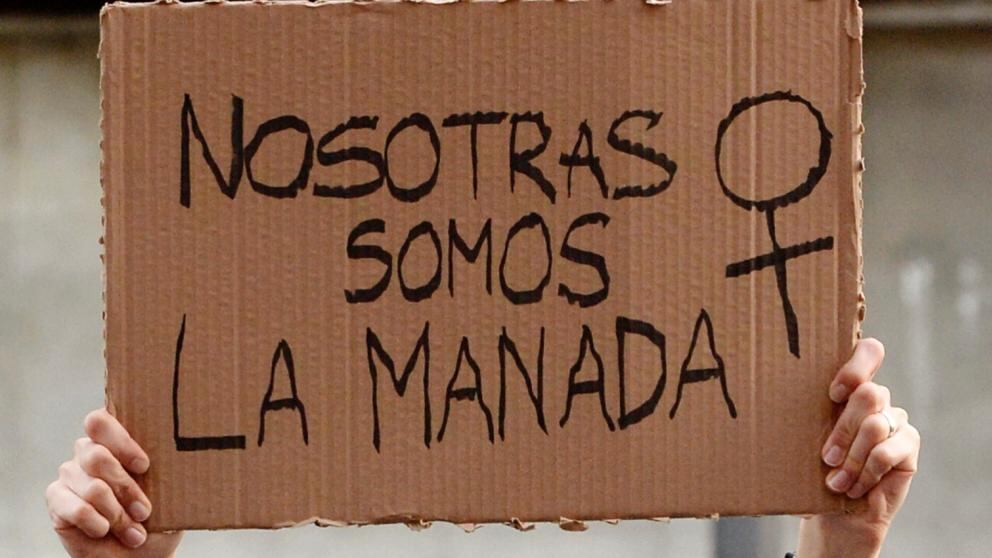 NOSOTRAS
SOMOS
LA MANADA